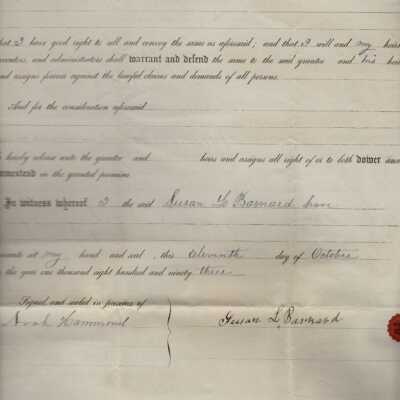 that I have good right to sell and convey the same as aforesaid; and that I will and my heirs
executors, and administrators shall warrant and defend the same to the said grantee and his heirs
and assigns forever against the lawful claims and demands of all persons.
And for the consideration aforesaid
do hereby release unto the grantee and heirs and assigns all right of or to both dower and
homestead in the granted premises
In witness whereof I the said Susan L Barnard have
hereunto set my hand and seal, this eleventh day of October
in the year one thousand eight hundred and ninety three
Signed and sealed in presence of
Noah Hammond
Susan L Barnard